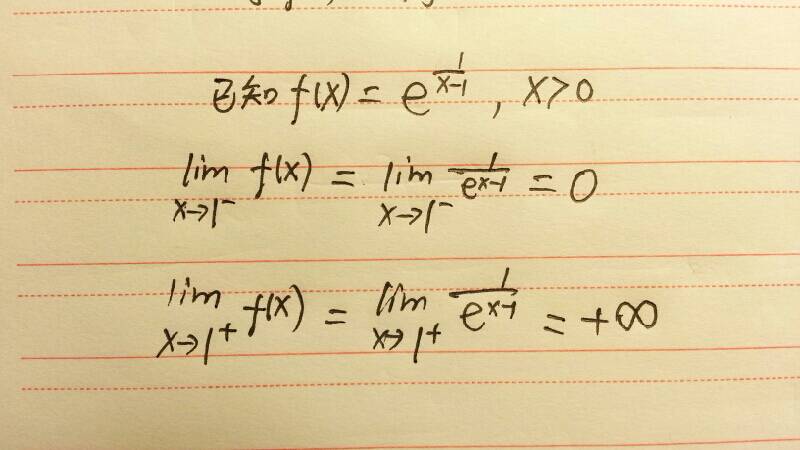 已知 f(x) = e^{\frac{1}{x-1}}, x>0
\lim_{x→1^-} f(x) = \lim_{x→1^-} \frac{1}{e^{x-1}} = 0
\lim_{x→1^+} f(x) = \lim_{x→1^+} \frac{1}{e^{x-1}} = +∞